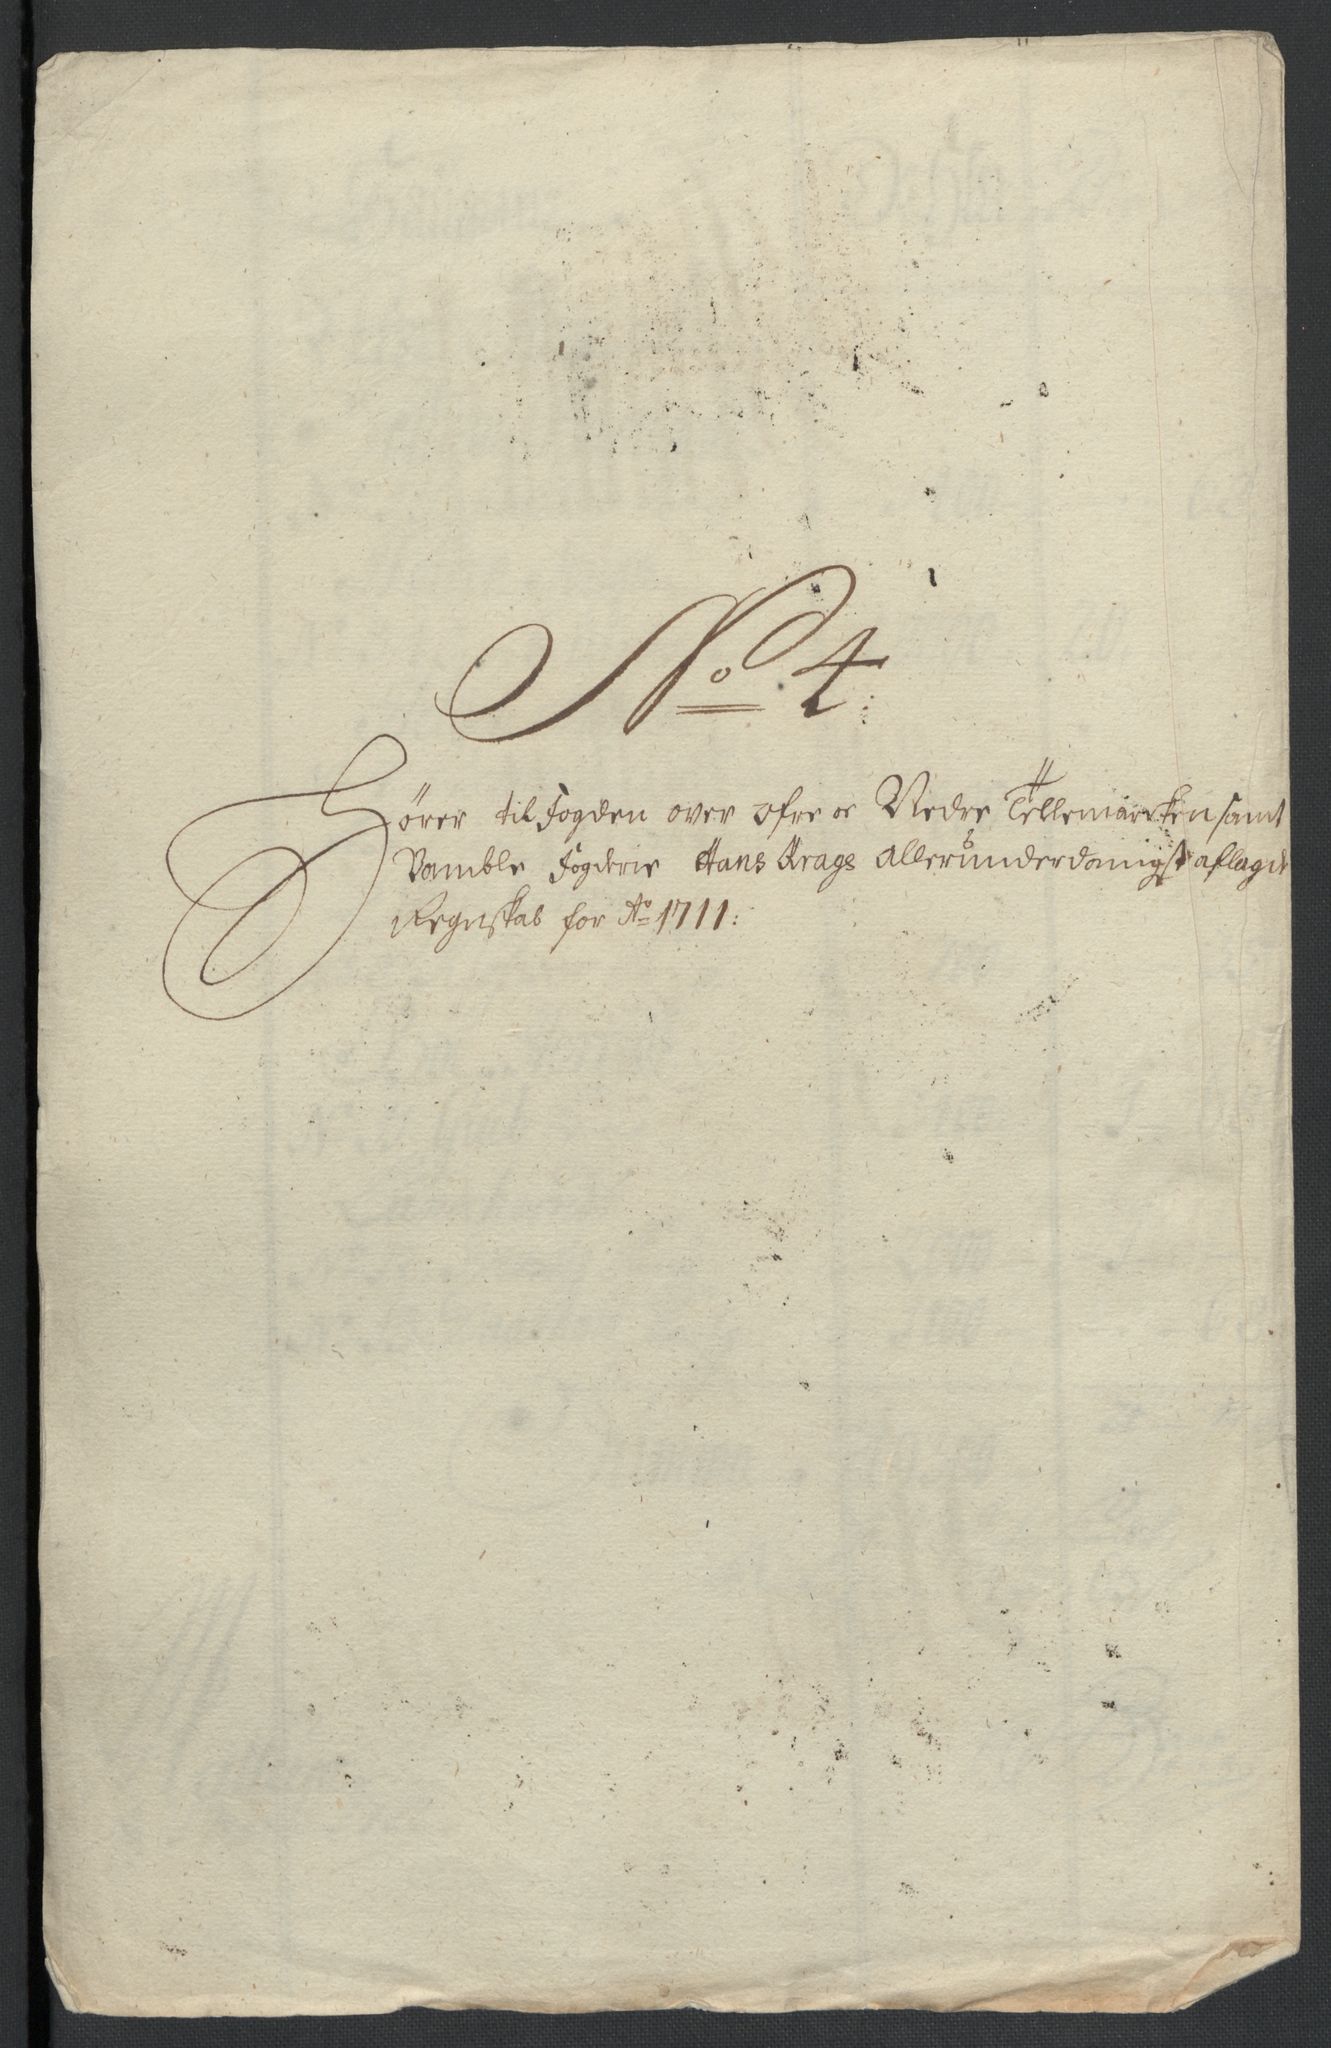 No. 4.
Hörer til Fogden over Øfre oc Nedre Tellemarken samt
Bamble Fogderie Hans Krags allerunderdanigst aflagde
Regnskab for Ao 1711: